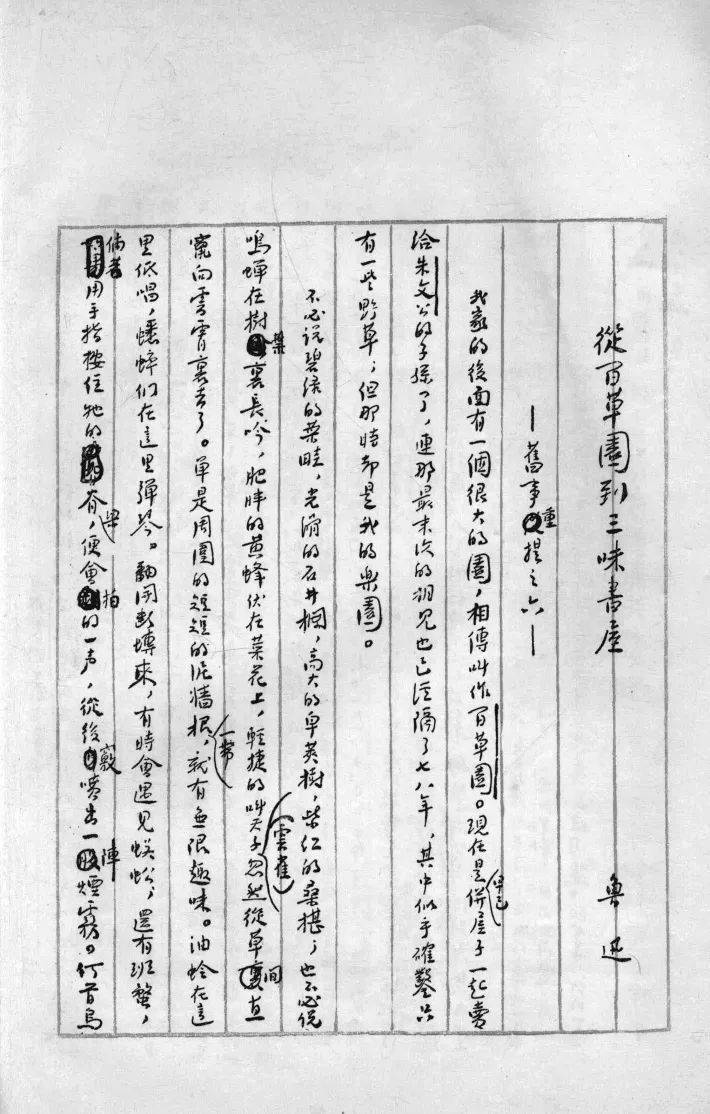 從百草園到三味書屋
魯迅
—舊事重提之六—
我家的後面有一個很大的園，相傳叫作百草園。現在是早已併屋子一起賣
給朱文公的子孫了，連那最末次的相見也已經隔了七八年，其中似乎確鑿只
有一些野草；但那時卻是我的樂園。
不必说碧绿的菜畦，光滑的石井欄，高大的皁莢樹，紫红的桑椹；也不必说
鳴蟬在樹葉裏長吟，肥胖的黄蜂伏在菜花上，輕捷的叫天子（雲雀）忽然從草間直
竄向雲霄裏去了。單是周圍的短短的泥牆根一带，就有無限趣味。油蛉在這
里低唱，蟋蟀们在這里彈琴。翻開斷塼來，有時會遇見蜈蚣；還有班蝥，
倘若用手指按住牠的脊梁，便會拍的一声，從後竅噴出一陣煙霧。何首烏